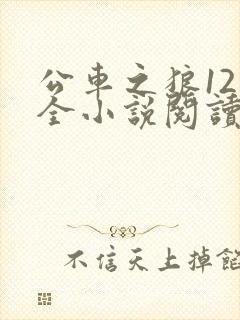 公車之狼12
全小說閱讀
不信天上掉餡